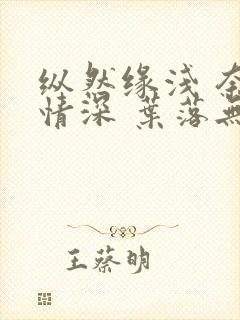 纵然缘浅 奈
情深 葉落無
王蔡明